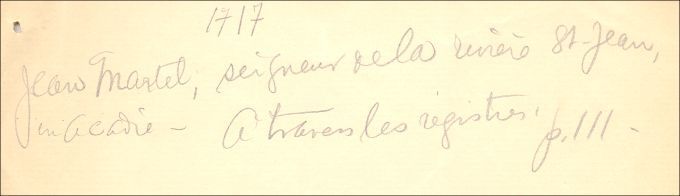 1717
Jean Martel, seigneur de la rivière St-Jean,
en Acadie - A travers les registres. p. 111 -